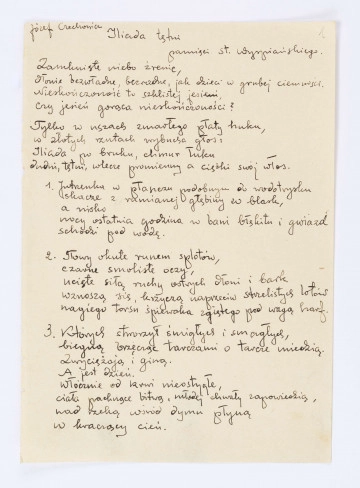 Józef Czechowicz
1
Iliada tętni
pamięci St. Wyspiańskiego.
Zamknięte niebo źrenic,
dłonie bezwładne, bezradne, jak dzieci w grubej ciemności.
Nieskończoność to szklistej jesieni,
czy jesień gorąca nieskończoności?
Tylko w uszach zmarłego płaty huku,
w złotych rzutach wybucha głos:
Iliada po bruku, chmur łuku
dudni, tętni, wlecze promienny a ciężki swój włos.
1. Jutrzenka w płaszczu podobnym do wodotrysku
skacze z rumianej głębiny w blask,
a nisko
nocy ostatnia godzina w bani błękitu i gwiazd
schodzi pod wodę.
2. Głowy okute runem splotów,
czarne smoliste oczy,
ucięte siłą ruchy ostrych dłoni i bark
wznoszą się, krzyczą naprzeciw strzelistych lotów
nagiego torsu śpiewaka zgiętego pod wagą harf.
3. Których stworzył śmigłych i smagłych,
biegną brzęcząc tarczami o tarcze miedzią.
Zwyciężają i giną.
A jest dzień.
Włócznie od krwi nieostygłe,
ciała pachnące bitwą, młodej chwały zapowiedzią,
nad rzeką wśród dymu płyną
w kraczący cień.